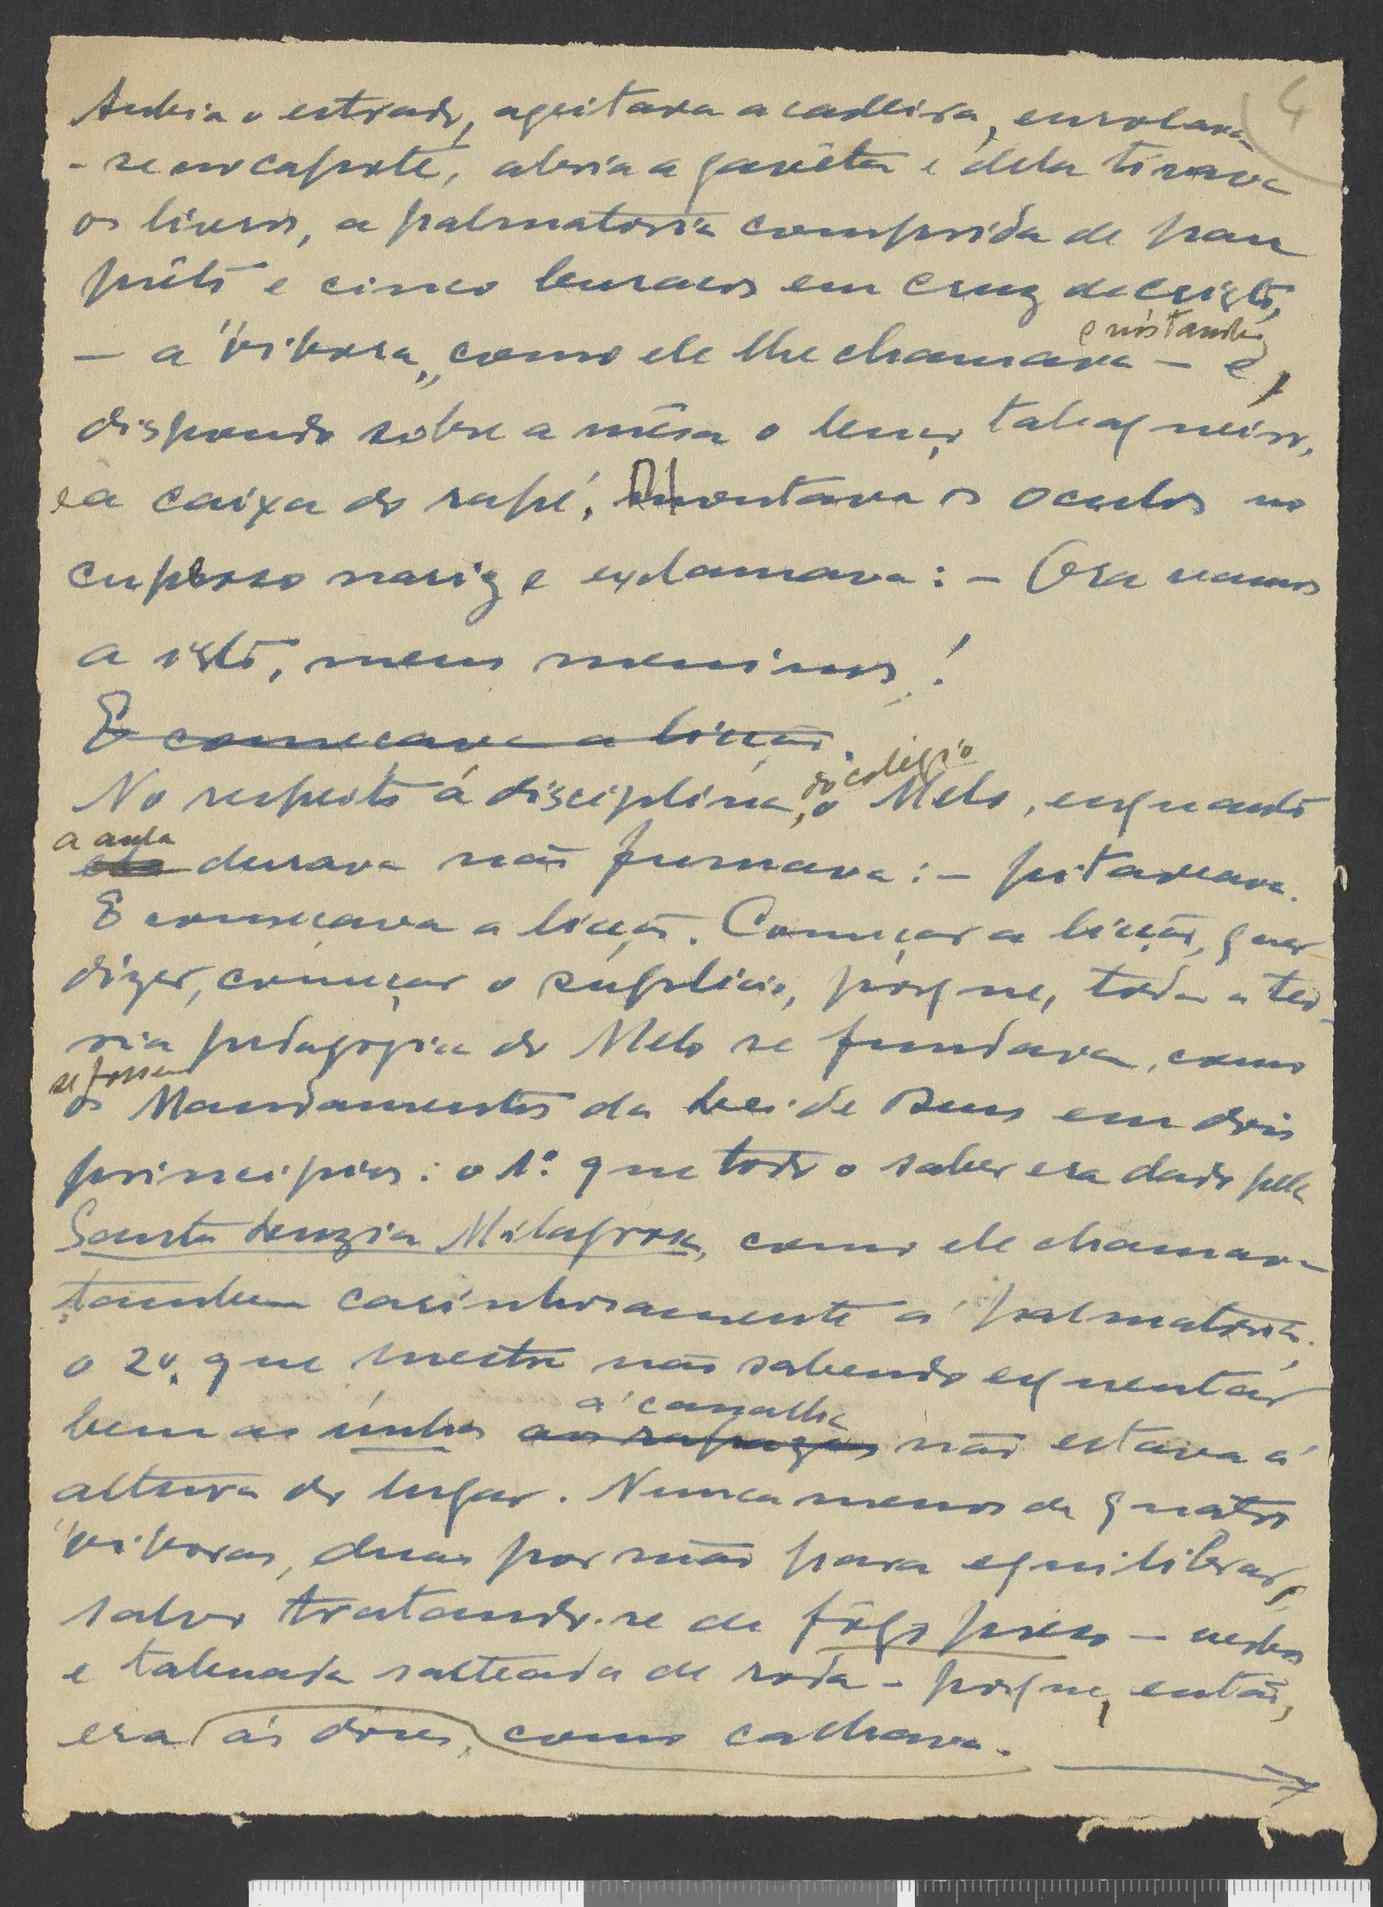 4
Subia o estrado, ageitava a cadeira, enrolava
- se no capote, abria a gavêta e dela tirava
os livros, a palmatoria comprida de pau
prêto e cinco buracos em cruz de cristo,
e nós tambem
— a "vibora„ como ele lhe chamava — e,
dispondo sôbre a mêsa o lenço tabaqueiro,
e a caixa do rapé, montava os oculos no
nariz e exclamava: — Ora vamos
a isto, meus meninos!
E começava a lição.
do colegio
No respeito á disciplina, o Melo, enquanto
a aula
ela durava não fumava: — pitadeava.
E começava a lição. Começar a lição, quer
dizer, começar o suplicio, porque, toda a teo-
ria pedagogica do Melo se fundava, como
se fossem
os Mandamentos da Lei de Deus em dois
principios: o 1º. que todo o saber era dado pela
Santa Luzia Milagrosa, como ele chamava
tambem carinhosamente á palmatoria;
o 2º. que mestre não sabendo esquentar
á canalha
bem as únhas aos rapazes não estava á
altura do lugar. Nunca menos de quatro
"viboras, duas por mão para equilibrar,
salvo tratando-se de fôgo prêso —
e tabuada salteada de roda — porque, então,
era ás dores, como calhava.